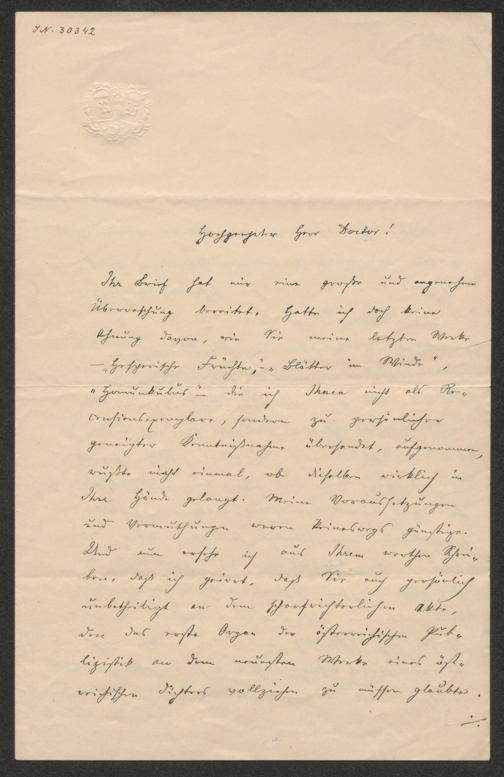 I.N. 30342
Hochgeehrter Herr Doctor!
Ihr Brief hat mir eine große und angenehme
Überraschung bereitet. Hatte ich doch keine
Ahnung davon, wie Sie meine letzten Werke
– „Hesperische Früchte", „Blätter im Winde",
„Homunkulus" – die ich Ihnen nicht als Re-
censionsexemplare, sondern zu persönlicher
geneigter Kenntnißnahme übersendet, aufgenommen,
wußte nicht einmal, ob dieselben wirklich in
Ihre Hände gelangt. Meine Voraussetzungen
und Vermuthungen waren keineswegs günstige.
Und nun ersehe ich aus Ihrem werthen Schrei-
ben, daß ich geirrt, daß Sie auch persönlich
unbetheiligt an dem scharfrichterlichen Akte,
den das erste Organ der österreichischen Pub-
lizistik an dem neuesten Werke eines öst-
reichischen Dichters vollziehen zu müssen glaubte.